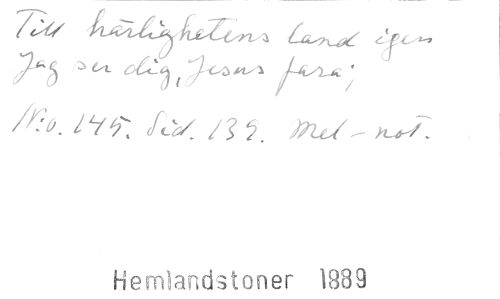 Till härlighetens land igen
Jag ser dig, Jesus fara;
N:o. 145. Sid. 139. Mel-not.
Hemlandstoner 1889